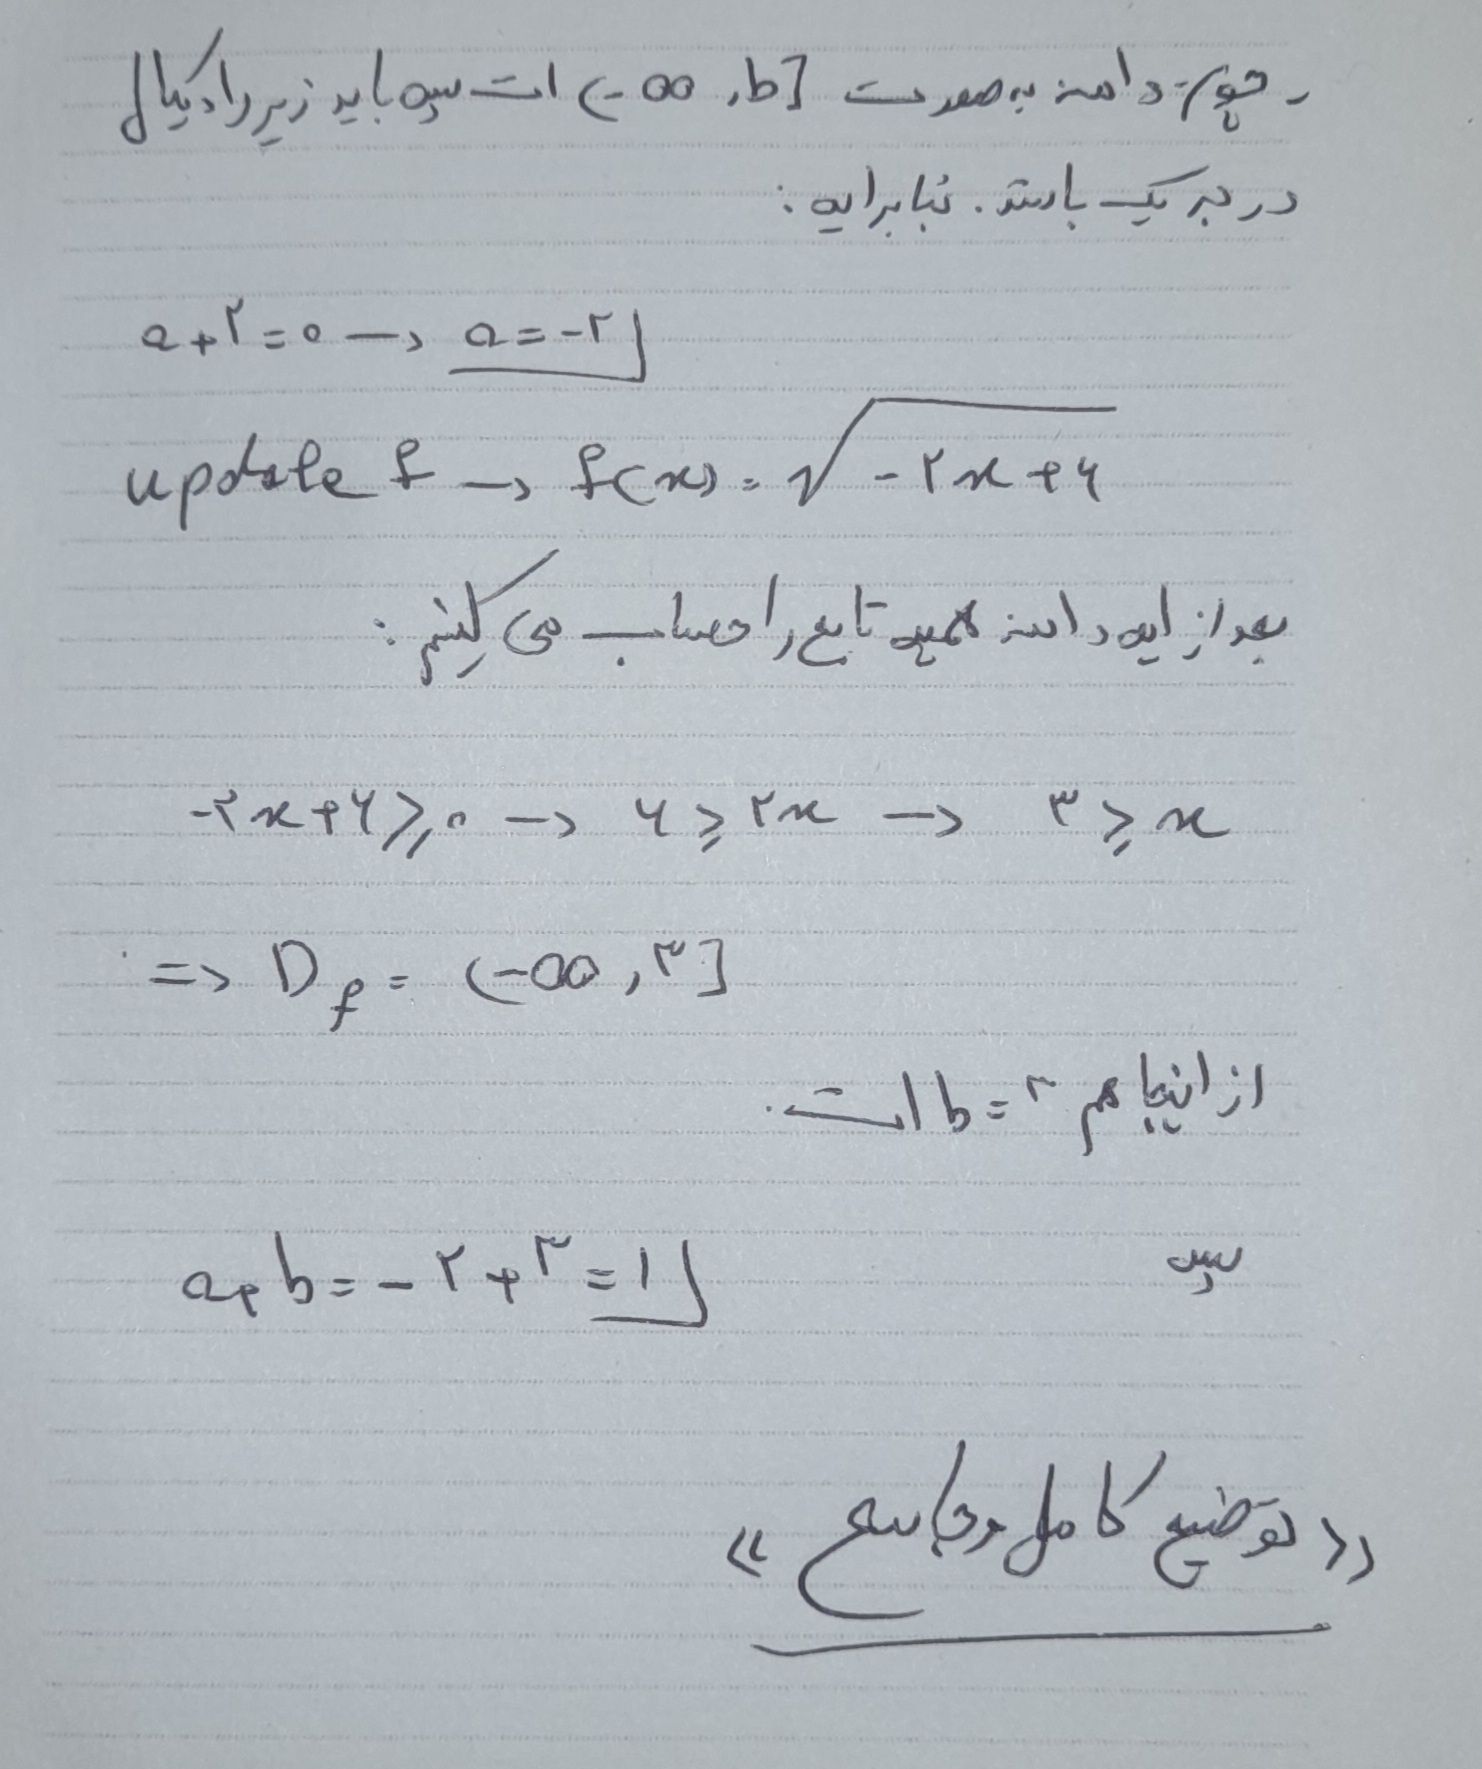 چون دامنه به صورت (-∞, b] است پس باید زیر رادیکال
درجه یک باشد. بنابراین:
a+۲=۰ → a=-۲
update f → f(x) = √-۲x+۶
بعد از این دامنه همین تابع را حساب می کنیم:
-۲x+۶⩾۰ → ۶⩾۲x → ۳⩾x
=> Df = (-∞, ۳]
از اینجا هم b=۳ است.
پس a+b=-۲+۳=۱
«توضیح کامل و جامع»